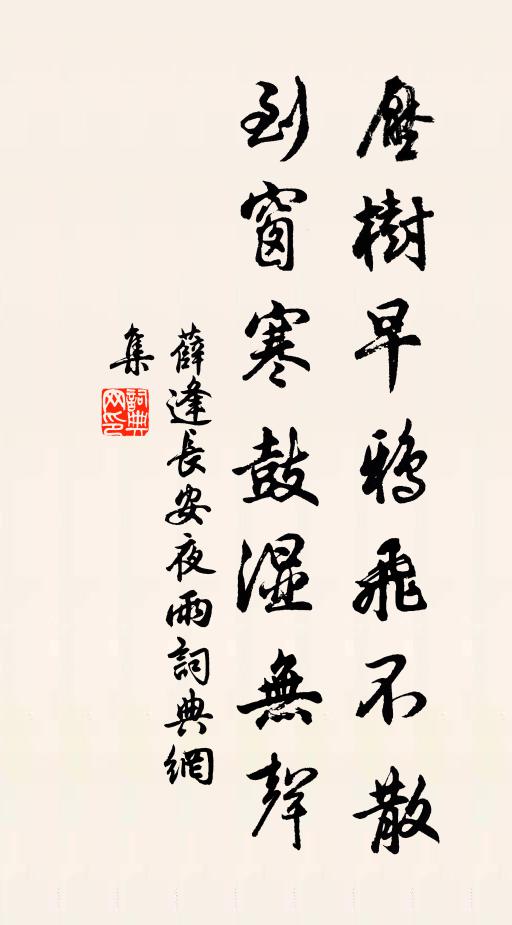 壓樹早鴉飛不散
到窗寒鼓濕無聲
薛逢長安夜雨詞典網
集
詞典
网印